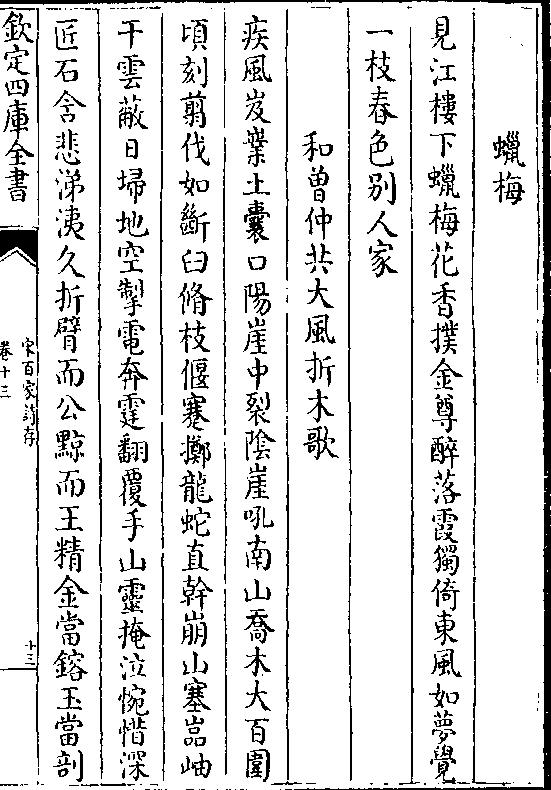 蠟梅
見江樓下蠟梅花香撲金尊醉落霞獨倚東風如夢覺
一枝春色别人家
和曽仲共大風折木歌
疾風岌嶪土囊口陽崖中裂陰崖吼南山喬木大百圍
頃刻翦伐如斷臼脩枝偃蹇擲龍蛇直幹崩山塞嵓岫
干雲蔽日埽地空掣電奔霆翻覆手山靈掩泣惋惜深
匠石含悲涕洟久折臂而公黥而王精金當鎔玉當剖
欽定四庫全書
宋百家詩存
卷十三
十三